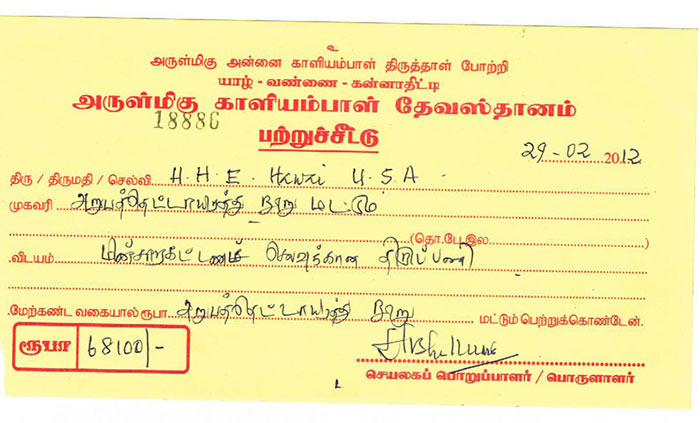 உ
அருள்மிகு அன்னை காளியம்பாள் திருத்தாள் போற்றி
யாழ் - வண்ணை - கன்னாதிட்டி
அருள்மிகு காளியம்பாள் தேவஸ்தானம்
18886
பற்றுச்சீட்டு
29-02 2012
திரு / திருமதி / செல்வி H.H.E. U.S.A
முகவரி அறுபத்தெட்டாயிரத்தி நூறு மட்டும்
(தொ.பே.இல )
விடயம் மின்சாரகட்டணம்
மேற்கண்ட வகையால் ரூபா அறுபத்தெட்டாயிரத்தி நூறு மட்டும் பெற்றுக்கொண்டேன்.
ரூபா 68100/-
செயலகப் பொறுப்பாளர் / பொருளாளர்